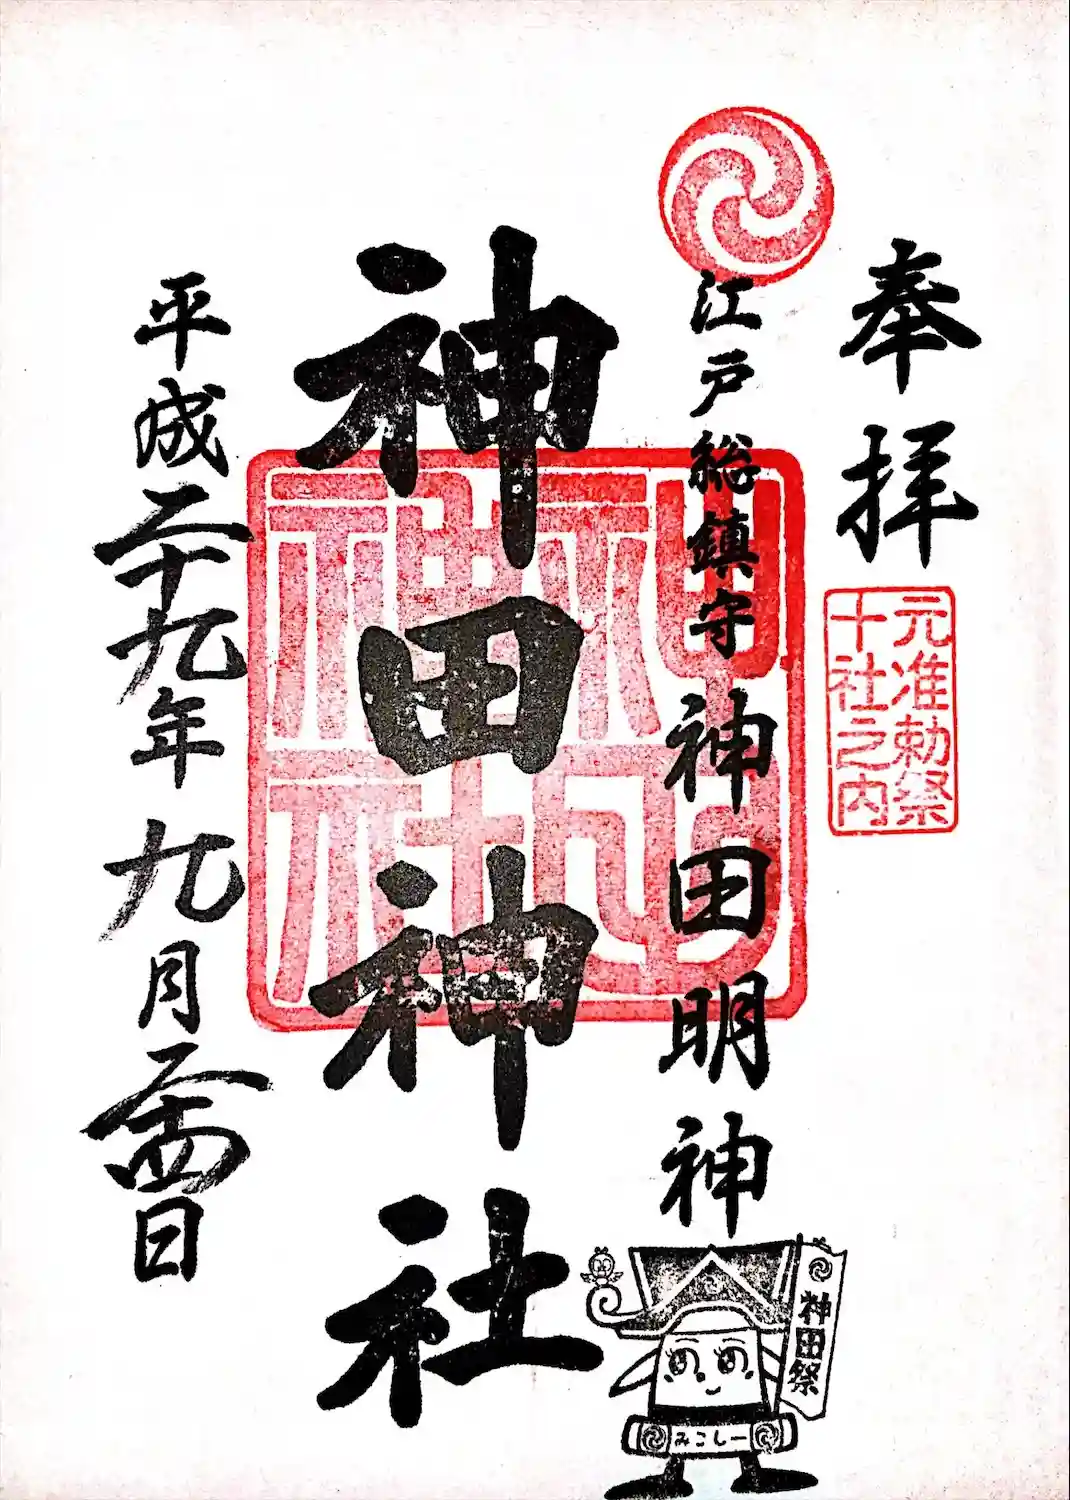 奉拝
元准勅祭
十社之内
江戸総鎮守 神田明神
神田神社
平成二十九年 九月二十四日
神田祭
みこしー